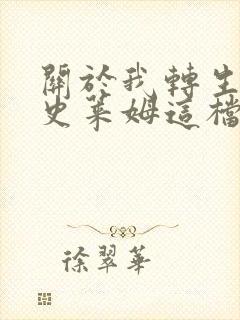 關於我轉生
史萊姆這檔
徐翠華